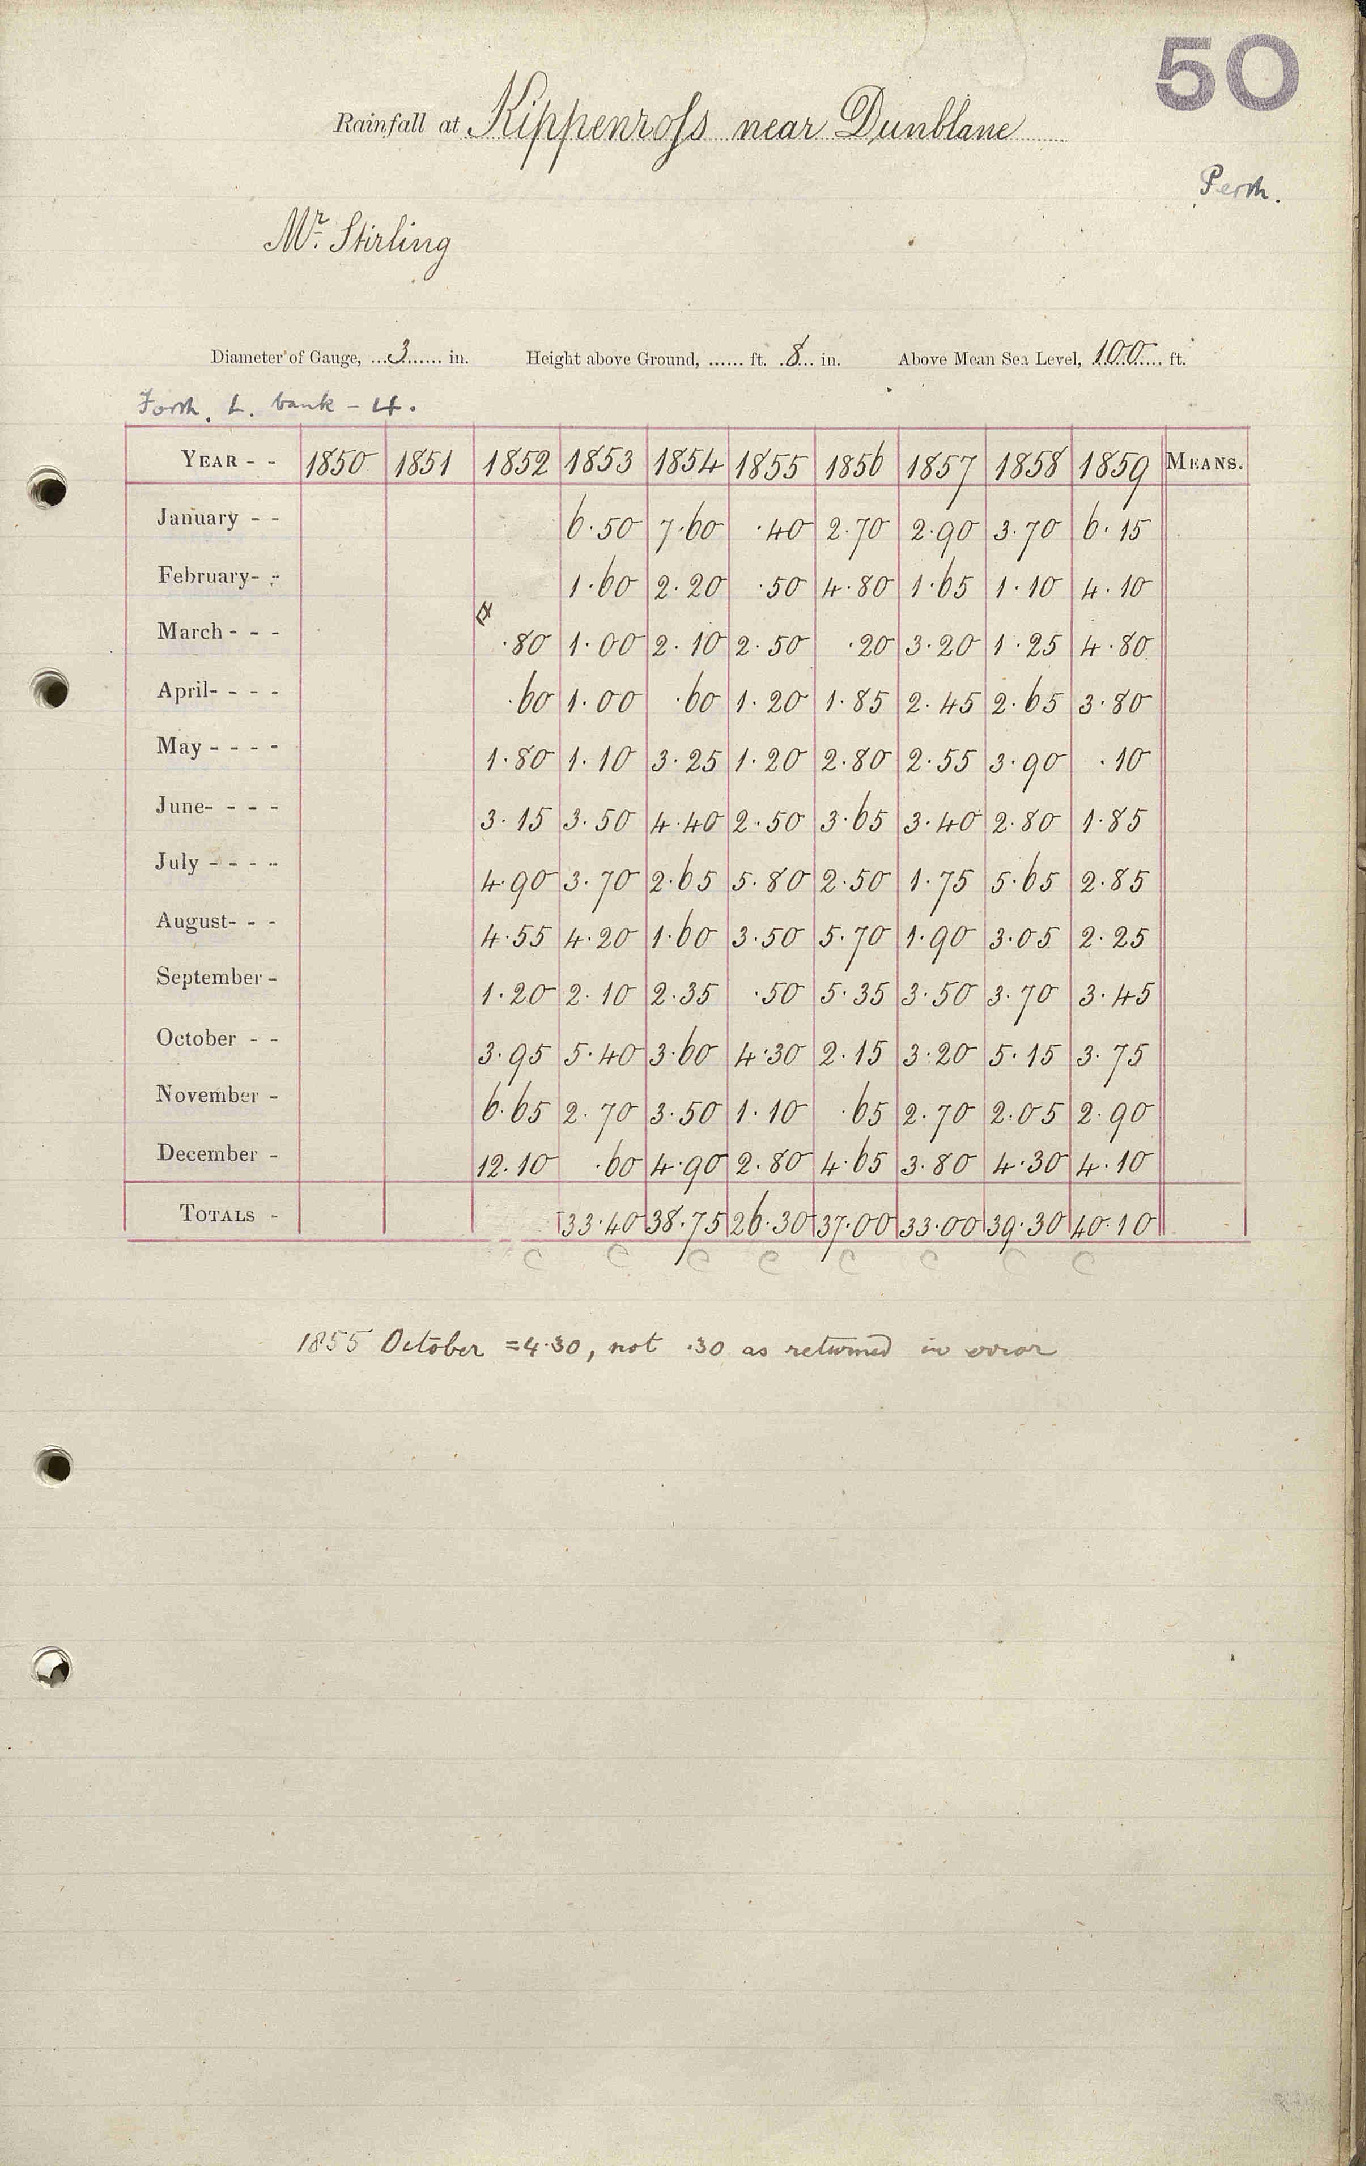 50
Rainfall at Kippenross near Dunblane
Perth.
Mr. Stirling
Diameter of Gauge, ...3...... in. Height above Ground, ...... ft. 8 in. Above Mean Sea Level, 100 ft.
Forth. L. bank - 4.
YEAR - - 1850 1851 1852 1853 1854 1855 1856 1857 1858 1859 MEANS.
January - - 6.50 7.60 .40 2.70 2.90 3.70 6.15
February- - 1.60 2.20 .50 4.80 1.65 1.10 4.10
March - - - .80 1.00 2.10 2.50 .20 3.20 1.25 4.80
April- - - - .60 1.00 .60 1.20 1.85 2.45 2.65 3.80
May - - - - 1.80 1.10 3.25 1.20 2.80 2.55 3.90 .10
June- - - - 3.15 3.50 4.40 2.50 3.65 3.40 2.80 1.85
July - - - - 4.90 3.70 2.65 5.80 2.50 1.75 5.65 2.85
August- - - 4.55 4.20 1.60 3.50 5.70 1.90 3.05 2.25
September - 1.20 2.10 2.35 .50 5.35 3.50 3.70 3.45
October - - 3.95 5.40 3.60 4.30 2.15 3.20 5.15 3.75
November - 6.65 2.70 3.50 1.10 .65 2.70 2.05 2.90
December - 12.10 .60 4.90 2.80 4.65 3.80 4.30 4.10
TOTALS - 33.40 38.75 26.30 37.00 33.00 39.30 40.10
C C C C C C C C
1855 October = 4.30, not .30 as returned in error